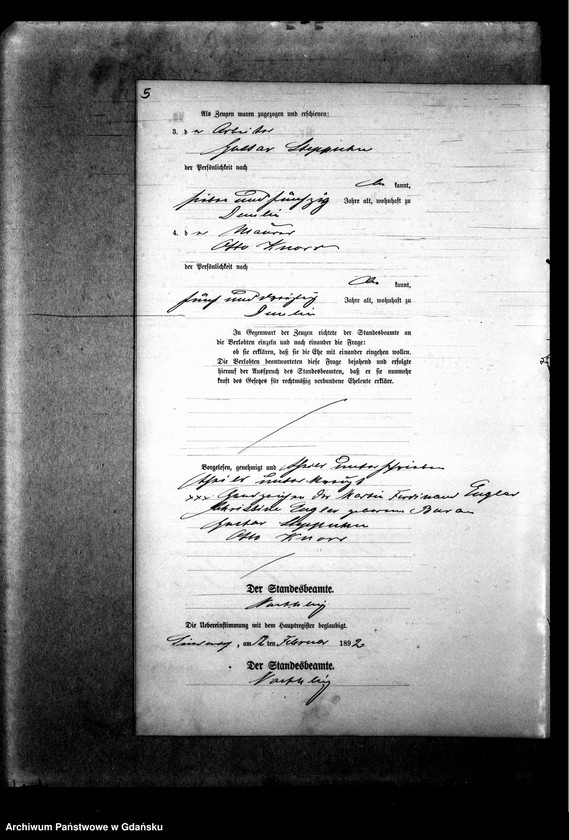 5
Als Zeugen waren zugezogen und erschienen:
3. der Arbeiter
Gustav
der Persönlichkeit nach
kannt,
sieben und fünfzig Jahre alt, wohnhaft zu
4. der Maurer
Otto Knorr
der Persönlichkeit nach
kannt,
fünf und dreißig Jahre alt, wohnhaft zu
In Gegenwart der Zeugen richtete der Standesbeamte an
die Verlobten einzeln und nach einander die Frage:
ob sie erklären, daß sie die Ehe mit einander eingehen wollen.
Die Verlobten beantworteten diese Frage bejahend und erfolgte
hierauf der Ausspruch des Standesbeamten, daß er sie nunmehr
kraft des Gesetzes für rechtmäßig verbundene Eheleute erkläre.
Vorgelesen, genehmigt und theils unterschrieben
theils unterkreuzt
xxx Handzeichen des Martin Ferdinand Engler
Christine Engler geborene
Gustav
Otto Knorr
Der Standesbeamte.
Die Uebereinstimmung mit dem Hauptregister beglaubigt.
, am 12 ten Februar 1892
Der Standesbeamte.
Archiwum Państwowe w Gdańsku